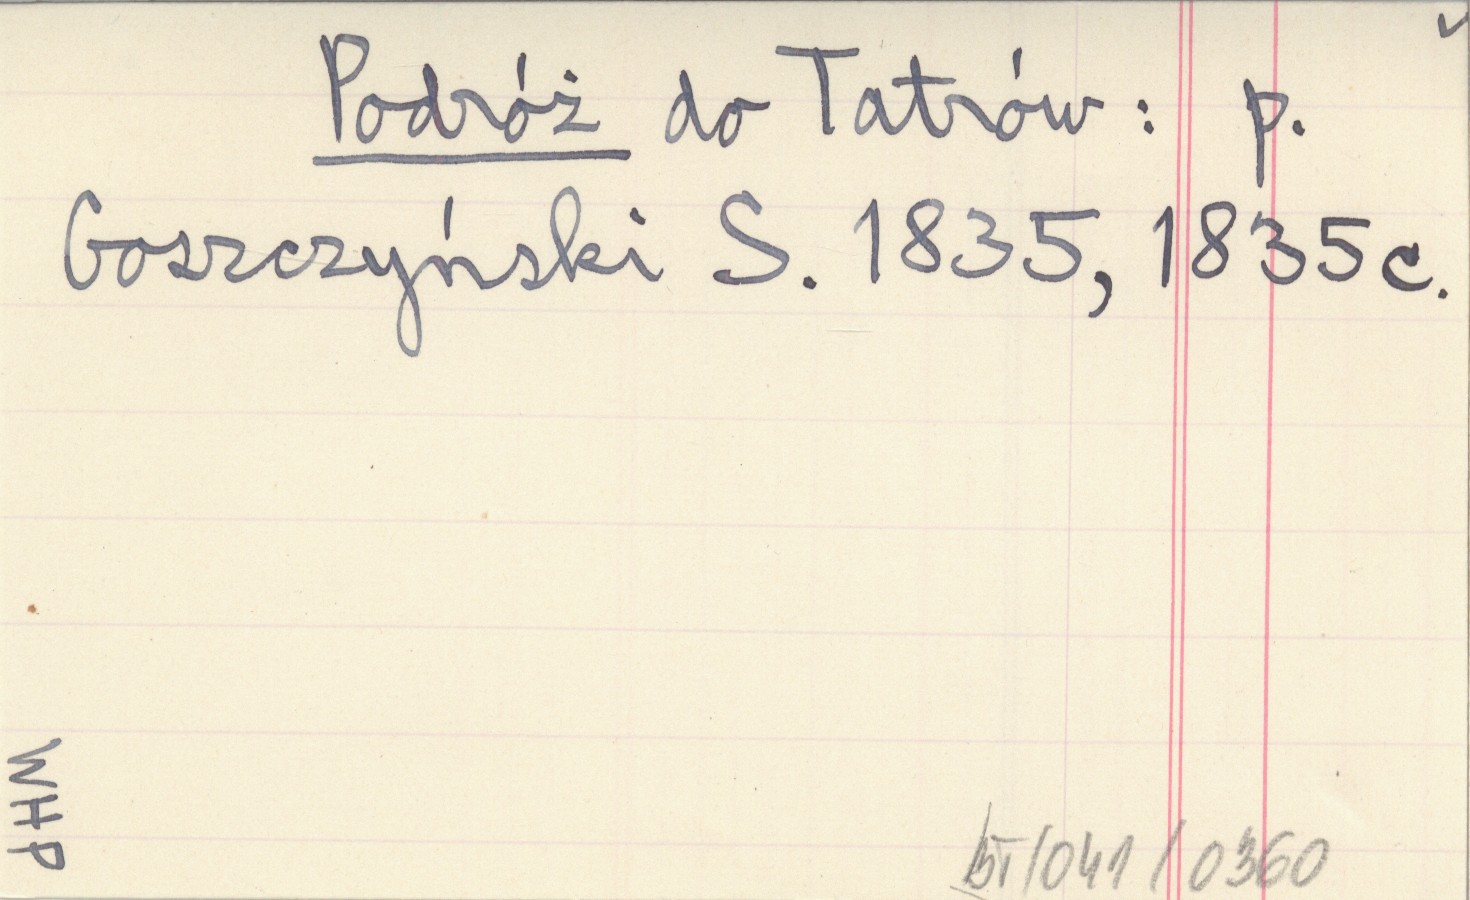 Podróż do Tatrów: p.
Goszczyński S. 1835, 1835c.
WHP
BT/041/0360